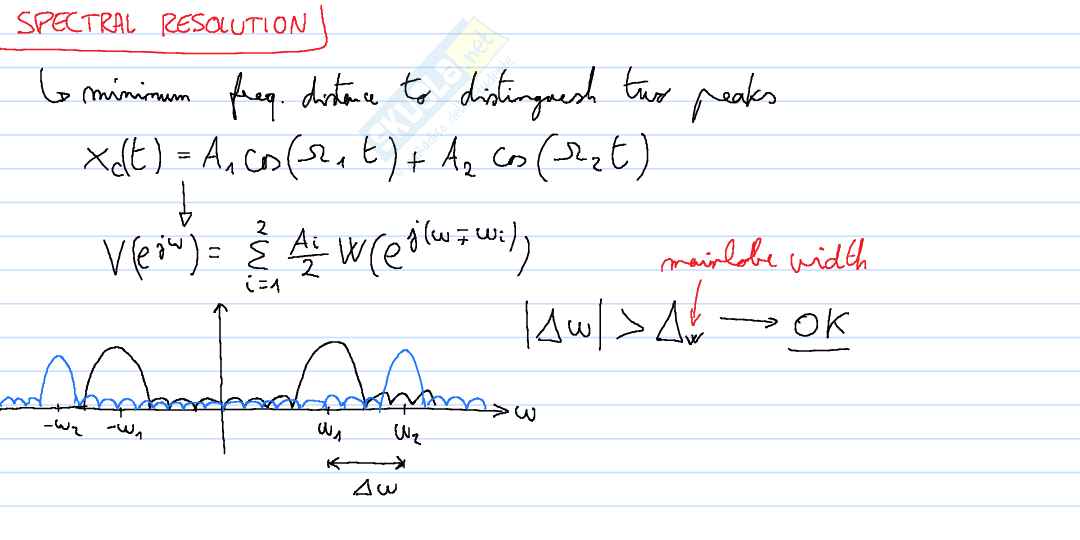 SPECTRAL RESOLUTION
↳ minimum freq. distance to distinguish two peaks
x_c(t) = A_1 cos(Ω_1 t) + A_2 cos(Ω_2 t)
V(e^{jω}) = Σ_{i=1}^{2} A_i/2 W(e^{j(ω∓ω_i)})
mainlobe width
|Δω| > Δ_w → OK
-ω_2 -ω_1 ω_1 ω_2 ω
Δω
SKUOLA.net